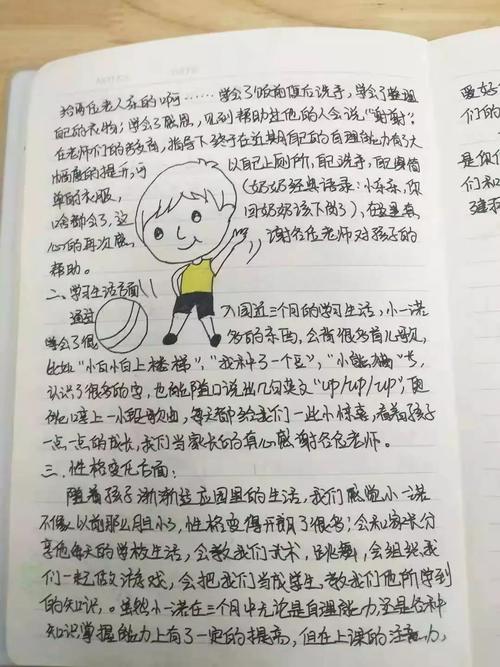 给两位老人家的啊……学会了饭前便后洗手，学会了整理
自己的衣物；学会了感恩，见到帮助过他的人会说“谢谢”；
在老师们的多方面指导下终于在近期自己的自理能力有了大
幅度的提升，可以自己上厕所，自己洗手，自己换简
单的衣服，（奶奶经典语录：小乖乖，你
啥都会了，这回奶奶该下岗了），在这里衷
心的再次感谢各位老师对孩子的
帮助。
二、学习生活方面
通过入园近三个月的学习生活，小一诺
学会了很多的东西，会背很多首儿歌，
比如“小白小白上楼梯”，“我种了一个豆”，“小熊猫”等，
认识了很多的字，也能随口说出几句英文“up/up/up”，更
能哼上一小段歌曲，每天都给我们一些小惊喜，看着孩子
一点一点的成长，我们当家长的真心感谢各位老师。
三、性格变化方面：
随着孩子渐渐适应园里的生活，我们感觉小一诺
不像以前那么胆小了，性格变得开朗了很多；会和家长分
享他每天的学校生活，会教我们武术，跳舞，会组织我
们一起做游戏，会把我们当成学生，教我们他所学到
的知识。虽然小一诺在三个月中无论是自理能力还是各种
知识掌握能力上有了一定的提高，但在上课的注意力，
爱好
们的
是你
们和